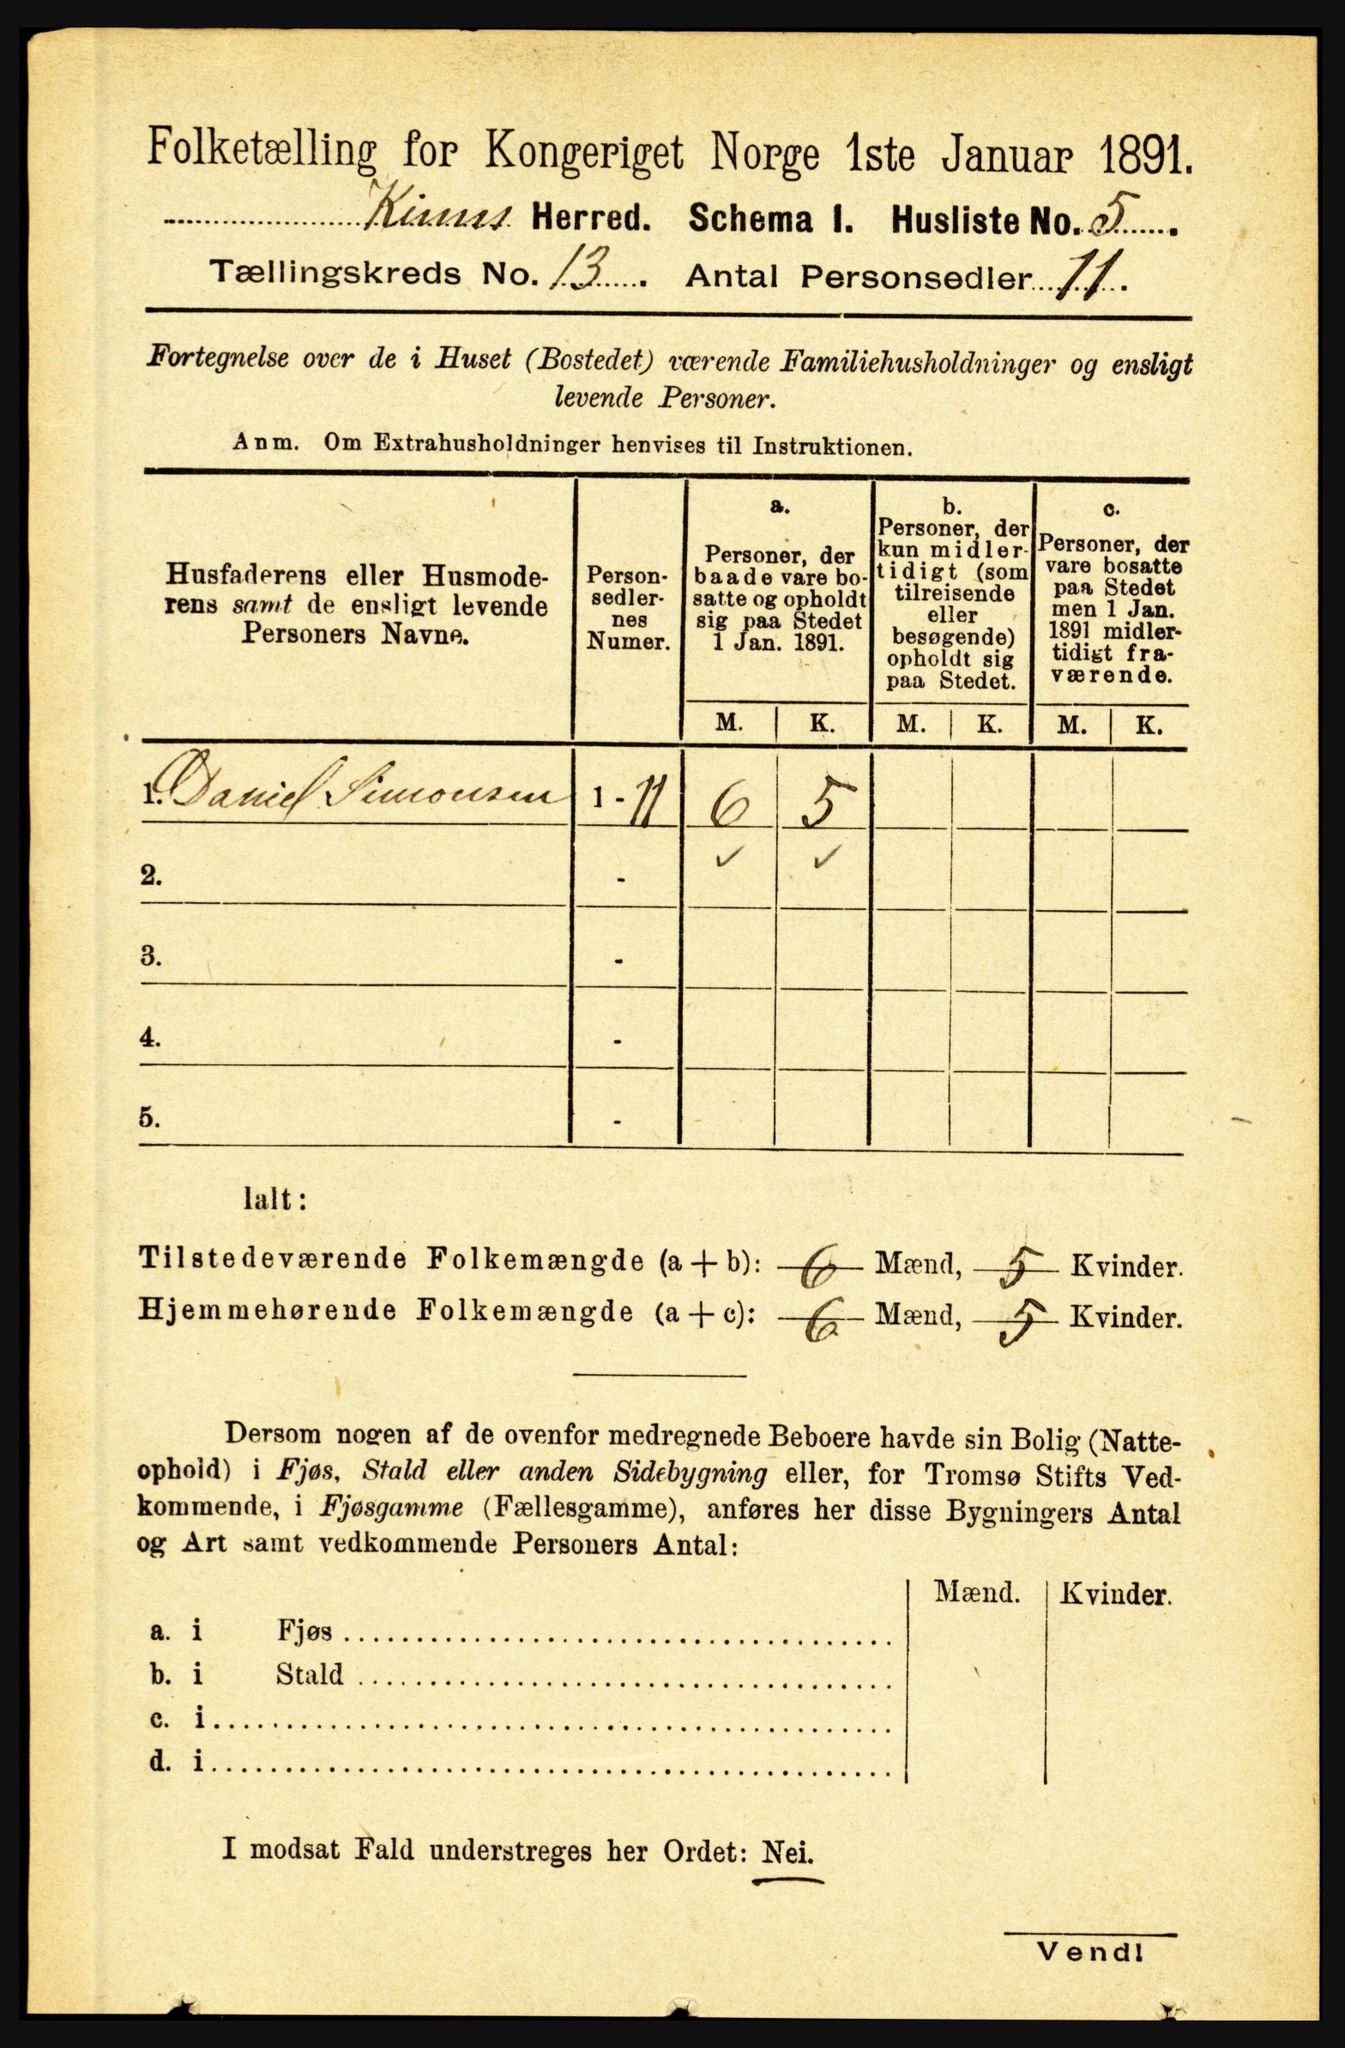 Folketælling for Kongeriget Norge 1ste Januar 1891.
Kinns Herred. Schema I. Husliste No. 5.
Tællingskreds No. 13. Antal Personsedler 11.
Fortegnelse over de i Huset (Bostedet) værende Familiehusholdninger og ensligt
levende Personer.
Anm. Om Extrahusholdninger henvises til Instruktionen.
Husfaderens eller Husmode-
rens samt de ensligt levende
Personers Navne.
Person-
sedler-
nes
Numer.
a.
Personer, der
baade vare bo-
satte og opholdt
sig paa Stedet
1 Jan. 1891.
b.
Personer, der
kun midler-
tidigt (som
tilreisende
eller
besøgende)
opholdt sig
paa Stedet.
c.
Personer, der
vare bosatte
paa Stedet
men 1 Jan.
1891 midler-
tidigt fra-
værende.
M. K. M. K. M. K.
1. Daniel Simonsen 1 - 11 6 5
2. - ✓ ✓
3. -
4. -
5. -
Ialt:
Tilstedeværende Folkemængde (a + b): 6 Mænd, 5 Kvinder.
Hjemmehørende Folkemængde (a + c): 6 Mænd, 5 Kvinder.
Dersom nogen af de ovenfor medregnede Beboere havde sin Bolig (Natte-
ophold) i Fjøs, Stald eller anden Sidebygning eller, for Tromsø Stifts Ved-
kommende, i Fjøsgamme (Fællesgamme), anføres her disse Bygningers Antal
og Art samt vedkommende Personers Antal:
Mænd. Kvinder.
a. i Fjøs
b. i Stald
c. i
d. i
I modsat Fald understreges her Ordet: Nei.
Vendl